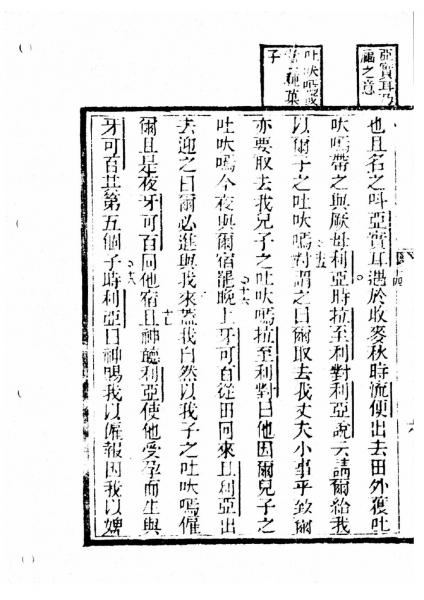 亞實耳乃
福之意
吐吠嗎或
菓
子
也且名之呌亞實耳遇於收麥秋時流便出去田外獲吐
十四
吠嗎帶之與厥母利亞時拉至利對利亞說云請爾給我
十五
以爾子之吐吠嗎對謂之曰爾取去我丈夫小事乎致爾
亦要取去我兒子之吐吠嗎拉至利對曰他因爾兒子之
十六
吐吠嗎今夜與爾宿罷晚上牙可百從田回來且利亞出
去迎之曰爾必進與我來蓋我自然以我子之吐吠嗎僱
十七
爾且是夜牙可百同他宿且神聽利亞使他受孕而生與
十八
牙可百其第五個子時利亞曰神賜我以僱報因我以婢